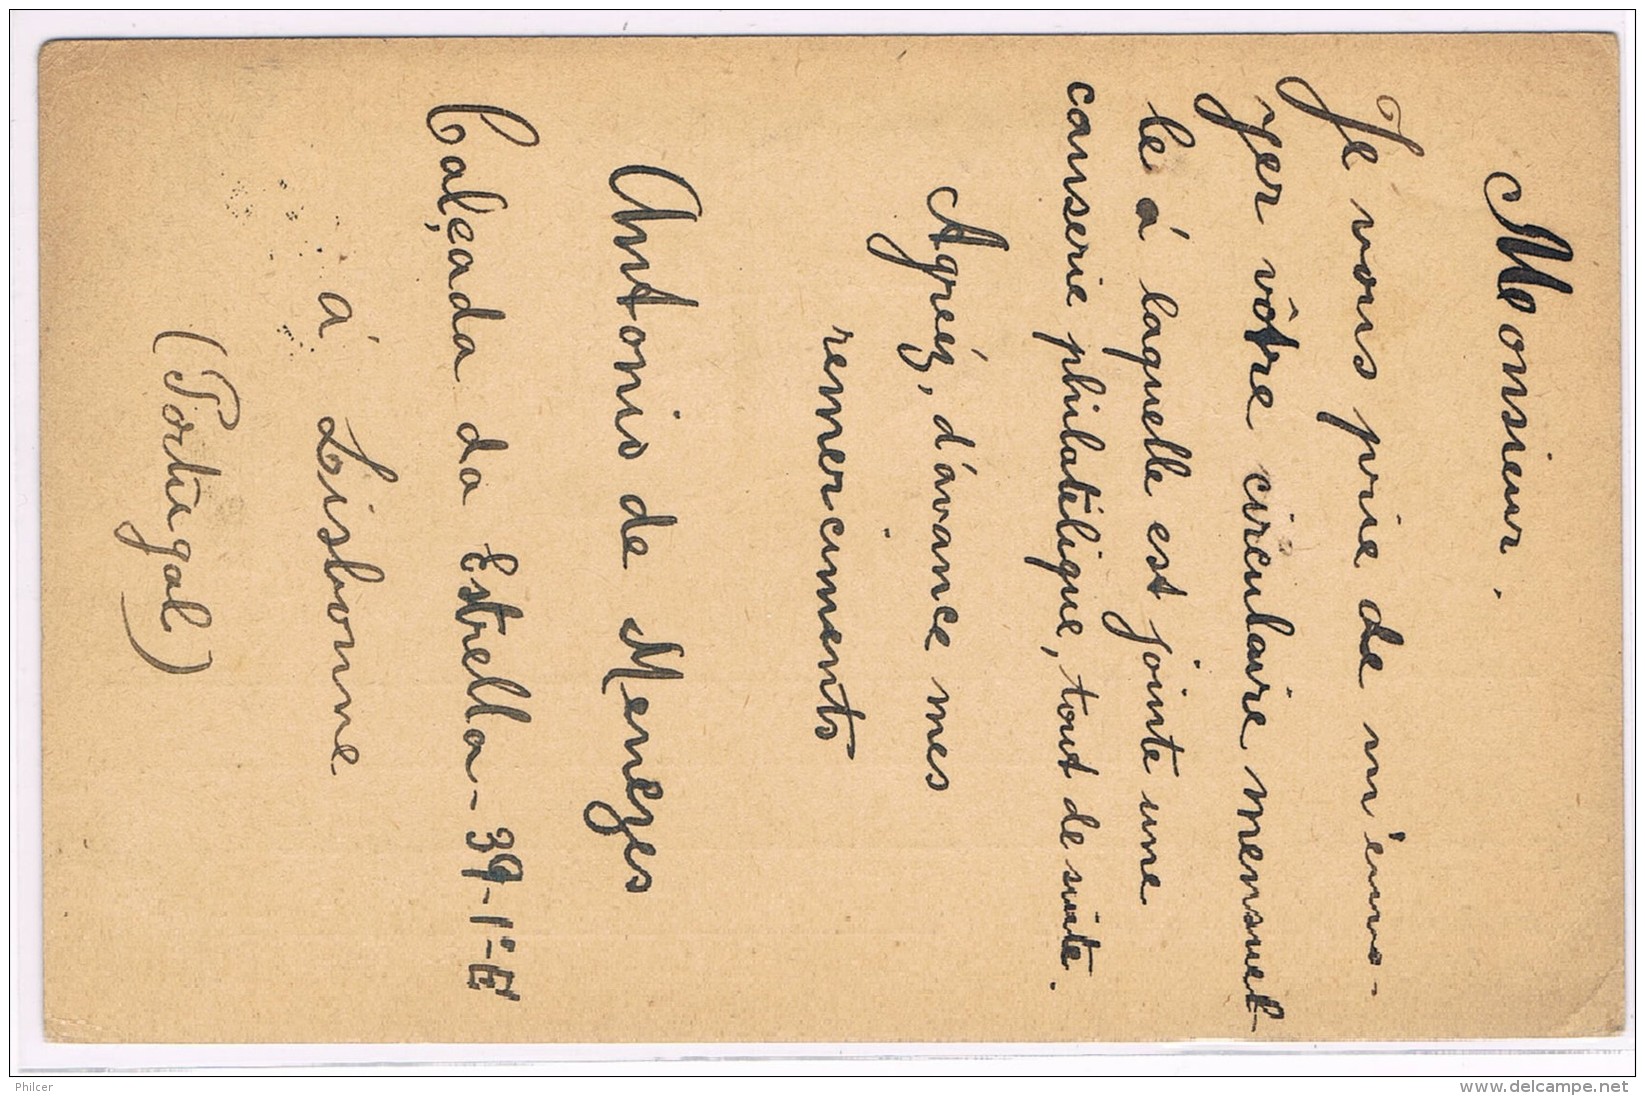 Monsieur,
Je vous prie de m'envo-
yer vôtre circulaire mensuel-
le á laquelle est jointe une
causerie philatélique, tout de suite.
Agréez, d'avance mes
remerciments
Antonio de Menezes
Calçada da Estrella - 39 - 1º - E
á Lisbonne
(Portugal)
Philcer
www.delcampe.net